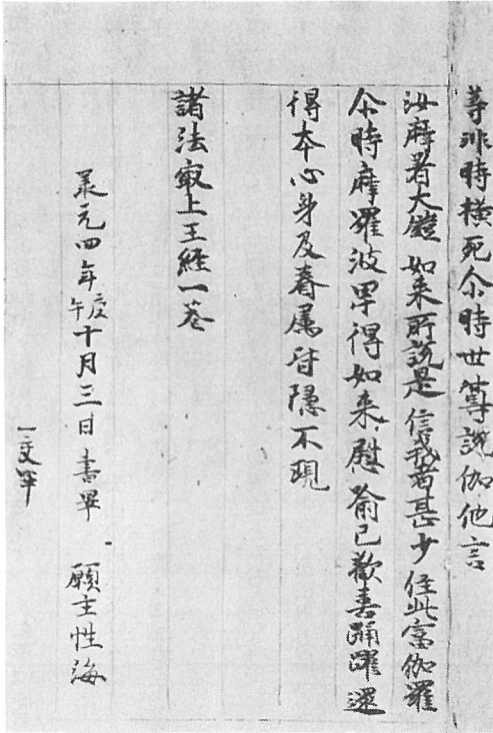 等非時横死尒時世尊説伽他言
汝應著大鎧 如来所説是 信我者甚少 住此富伽羅
尒時魔羅波卑得如来慰喩已歡喜踊躍還
得本心身及眷属皆隠不現
諸法冣上王経一巻
承元四年庚午十月三日書畢 願主性海
一交畢